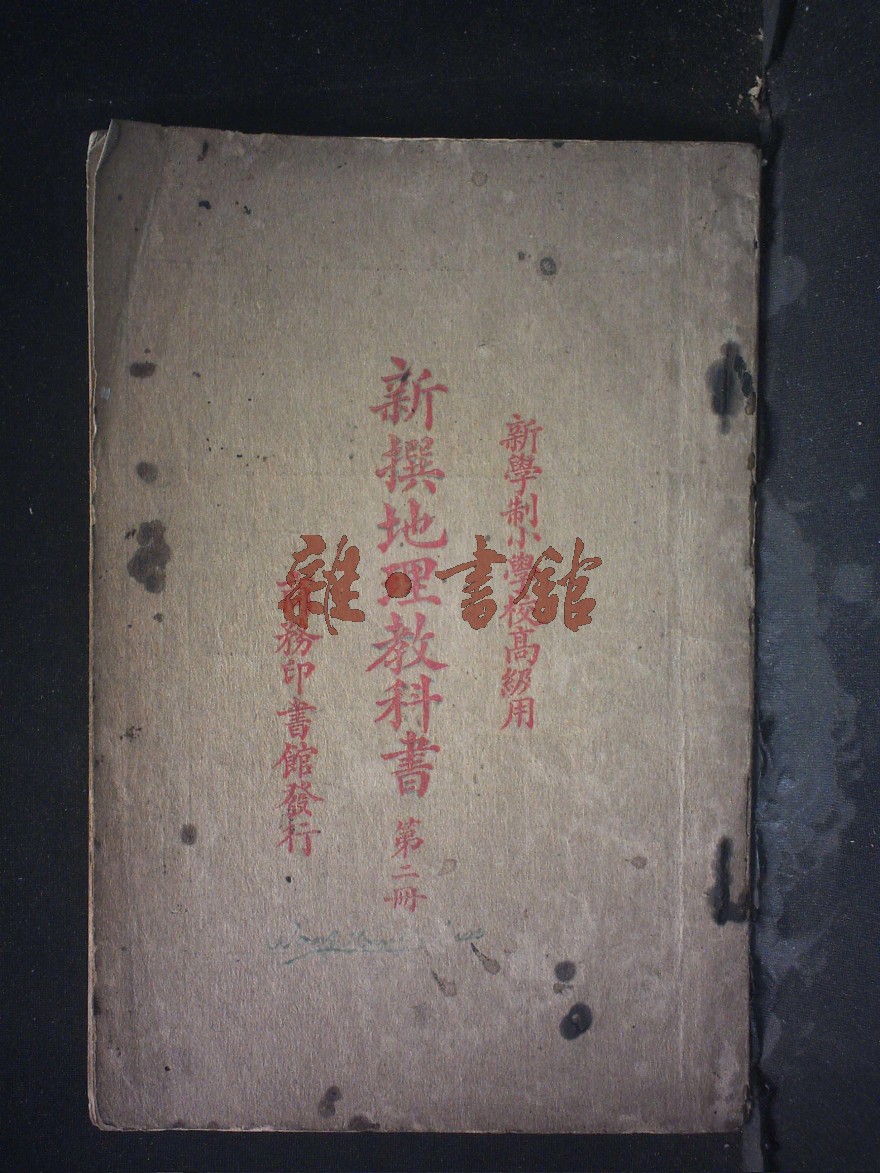 新學制小學校高級用
新撰地理教科書 第二冊
商務印書館發行
雜·書館